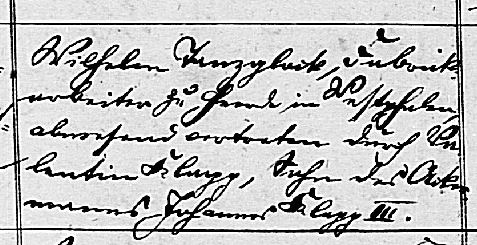 Wilhelm Tanzglock, Fabrik-
arbeiter zu Heerde in Westphalen,
abwesend vertreten durch Va-
lentin Klapp, Sohn des Acker-
manns Johannes Klapp III.